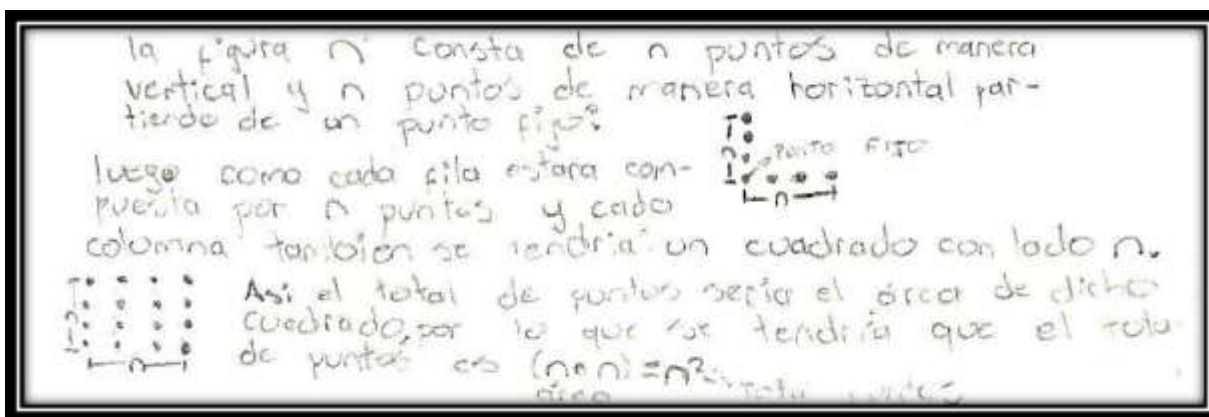 la figura n consta de n puntos de manera
vertical y n puntos de manera horizontal par-
tiendo de un punto fijo.
n PUNTO FIJO
luego como cada fila estara com-
puesta por n puntos y cada
n
columna tambien se tendria un cuadrado con lado n.
Asi el total de puntos seria el área de dicho
n cuadrado, por lo que se tendria que el total
n
de puntos es (n•n)=n²
área total puntos